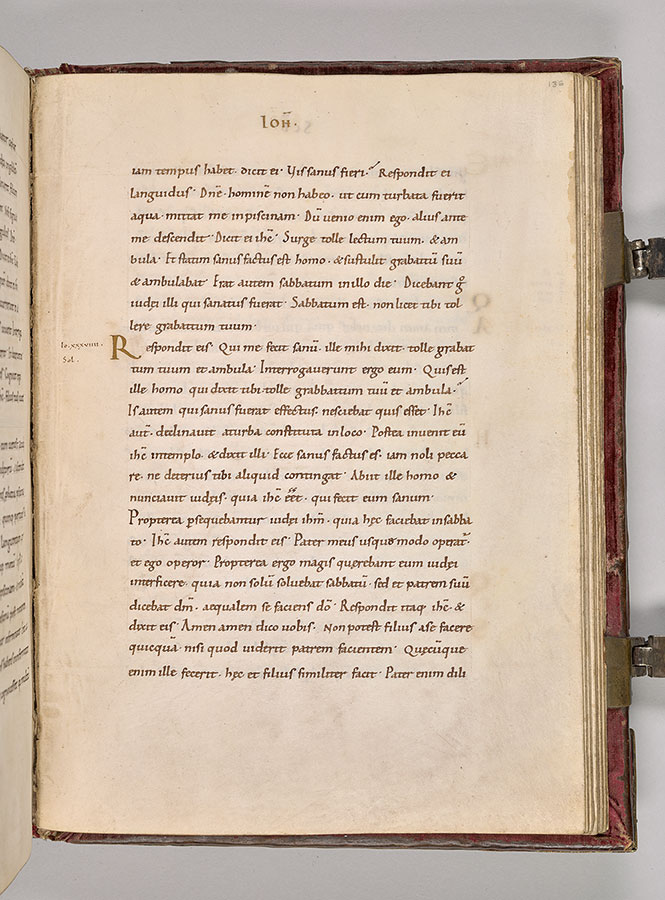 136
IOH̄·
iam tempus habet· dicit ei· Uis sanus fieri·́ Respondit ei
languidus· Dn̄e· hominē non habeo· ut cum turbata fuerit
aqua· mittat me in piscinam· Dū venio enim ego· alius ante
me descendit· Dicit ei ih̄c· Surge tolle lectum tuum· & am
bula· Et statim sanus factus est homo· & sustulit grabattū suū
& ambulabat· Erat autem sabbatum in illo die· Dicebant gͦ
iudęi illi qui sanatus fuerat· Sabbatum est· non licet tibi tol
lere grabattum tuum·
Io·xxxviiii·
Sol·
Respondit eis· Qui me fecit sanū· ille mihi dixit· tolle grabat
tum tuum et ambula· Interrogaverunt ergo eum· Quis est
ille homo qui dixit tibi· tolle grabbattum tuū et ambula·́
Is autem qui sanus fuerat effectus· nesciebat quis esset· Ih̄c
aut̄· declinavit a turba constituta in loco· Postea invenit eū
ih̄c in templo· & dixit illi· Ecce sanus factus es· iam noli pecca
re· ne deterius tibi aliquid contingat· Abiit ille homo &
nunciavit iudęis· quia ih̄c eēt· qui fecit eum sanum·
Propterea psequebantur iudęi ih̄m· quia hęc faciebat in sabba
to· Ih̄c autem respondit eis· Pater meus usque modo operat᷑·
et ego operor· Propterea ergo magis querebant eum iudęi
interficere· quia non solū solvebat sabbatū· sed et patrem suū
dicebat dm̄· aequalem se faciens dō· Respondit itaq ih̄c· &
dixit eis· Amen amen dico vobis· Non potest filius a se facere
quicquā· nisi quod uiderit patrem facientem· Quęcūque
enim ille fecerit· hęc et filius similiter facit· Pater enim dili